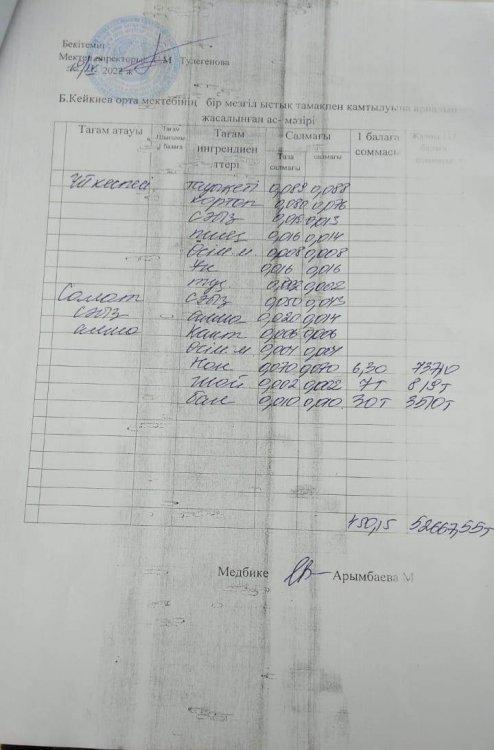 Бекітемін :
Мектеп директоры: М Тулегенова
2022 ж
Б.Кейкиев орта мектебінің бір мезгіл ыстық тамақпен қамтылуына арналып
жасалынған ас- мәзірі
Тағам атауы Тағам Тағам Салмағы 1 балаға
ингрендиен Таза салмағы соммасы
ттері салмағы
Үй кеспесі тауықеті 0,089 0,088
картоп 0,080 0,076
сәбіз 0,013
пияз 0,016 0,014
өсім.м 0,008 0,008
ұн 0,016 0,016
тұз 0,002 0,002
Салат сәбіз 0,050 0,043
сәбіз алма 0,020 0,014
алма қант 0,006 0,006
өсім.м 0,004 0,004
Нан 0,070 0,070 6,30 737,10
шай 0,002 0,002 7т 819т
бал 0,010 0,010 30т 3510т
450,15 52667,55т
Медбике Арымбаева М